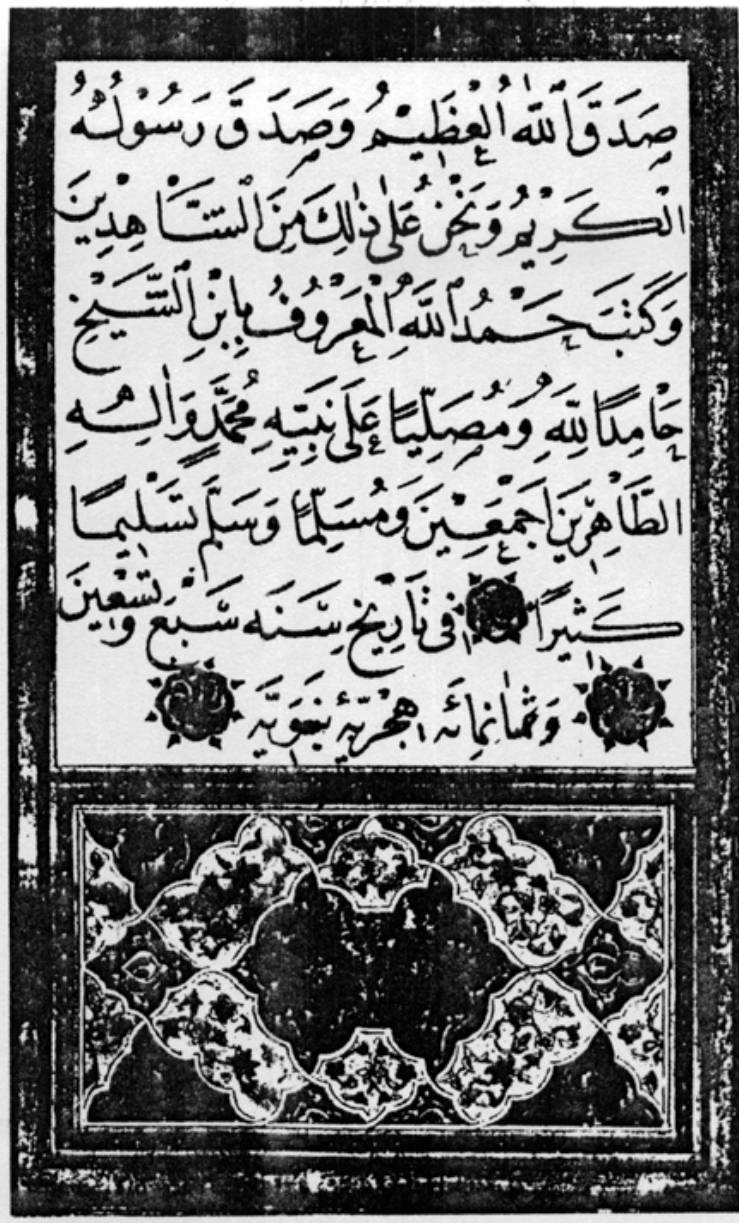 صَدَقَ ٱللّٰهُ الْعَظِيْمُ وَصَدَقَ رَسُوْلُهُ
الْكَرِيْمُ وَنَحْنُ عَلٰى ذٰلِكَ مِنَ الشَّاهِدِينَ
وَكَتَبَ حَمْدُ ٱللّٰهِ الْمَعْرُوْفُ بِابْنِ الشَّيْخِ
حَامِدًا لِلّٰهِ وَمُصَلِّيًا عَلَى نَبِيِّهِ مُحَمَّدٍ وَاٰلِهِ
الطَّاهِرِينَ اَجْمَعِيْنَ وَمُسَلِّمًا وَسَلَّمَ تَسْلِيمًا
كَثِيرًا فى تَارِيْخِ سَنَه سَبْعٍ وَتِسْعِينَ
وَثَمَانِمِائَه هِجْرِيَّهٔ نَبَوِيَّه